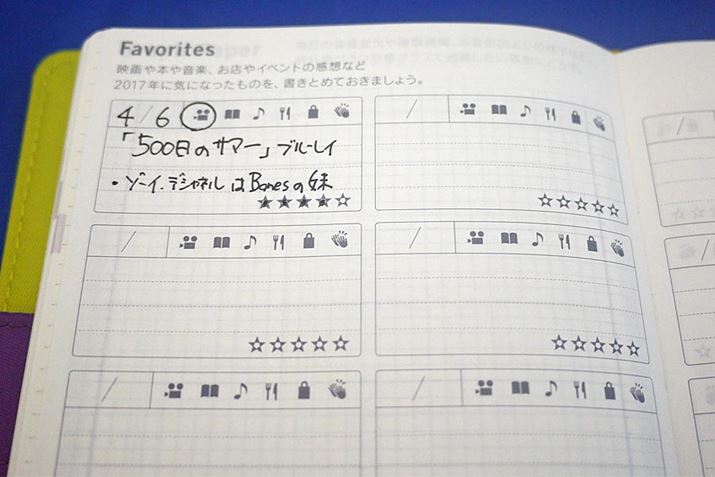 Favorites
映画や本や音楽、お店やイベントの感想など
2017年に気になったものを、書きとめておきましょう。
4/6
「500日のサマー」ブルーレイ
・ゾーイ.デシャネルはBonesの妹
/
/
/
/
/